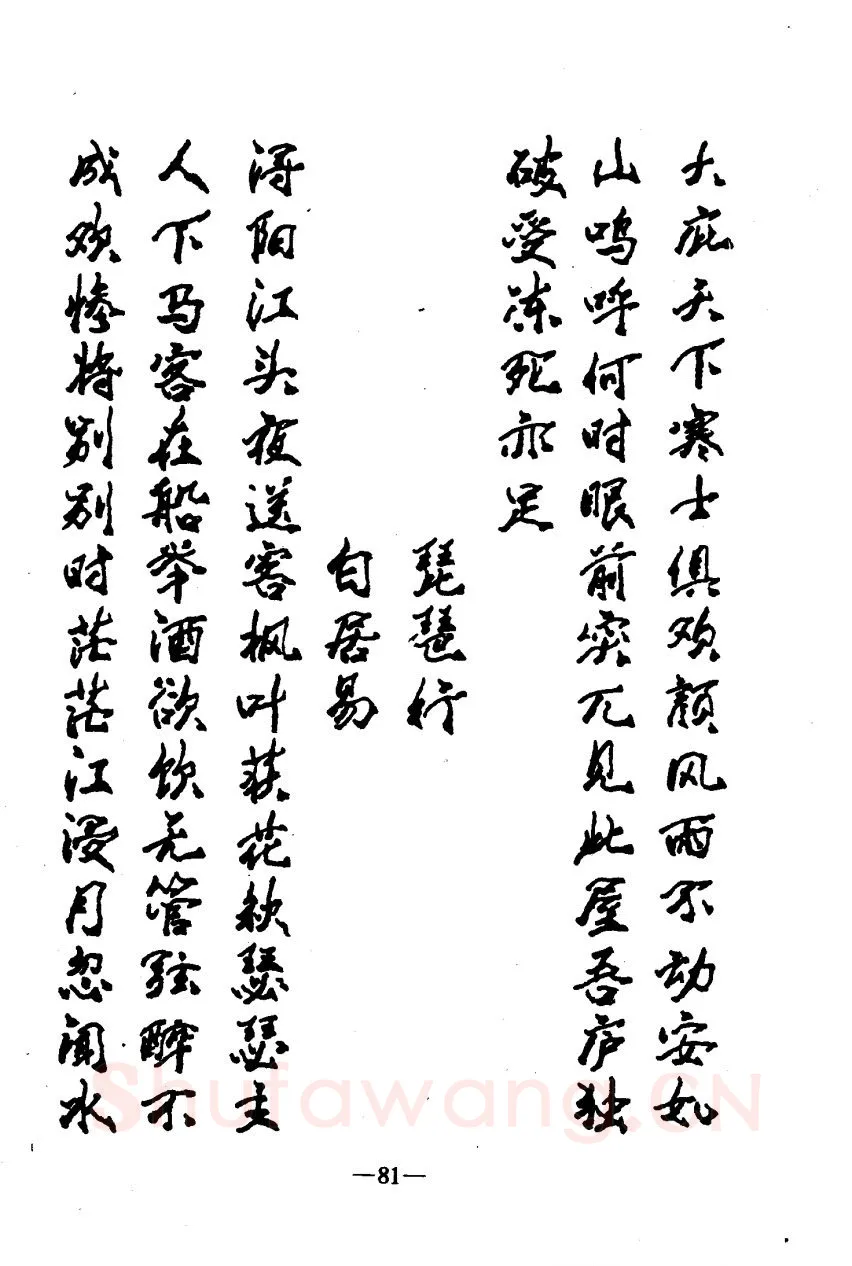 大庇天下寒士俱欢颜风雨不动安如
山呜呼何时眼前突兀见此屋吾庐独
破受冻死亦足
琵琶行
白居易
浔阳江头夜送客枫叶荻花秋瑟瑟主
人下马客在船举酒欲饮无管弦醉不
成欢惨将别别时茫茫江浸月忽闻水
—81—
Shufawang.CN